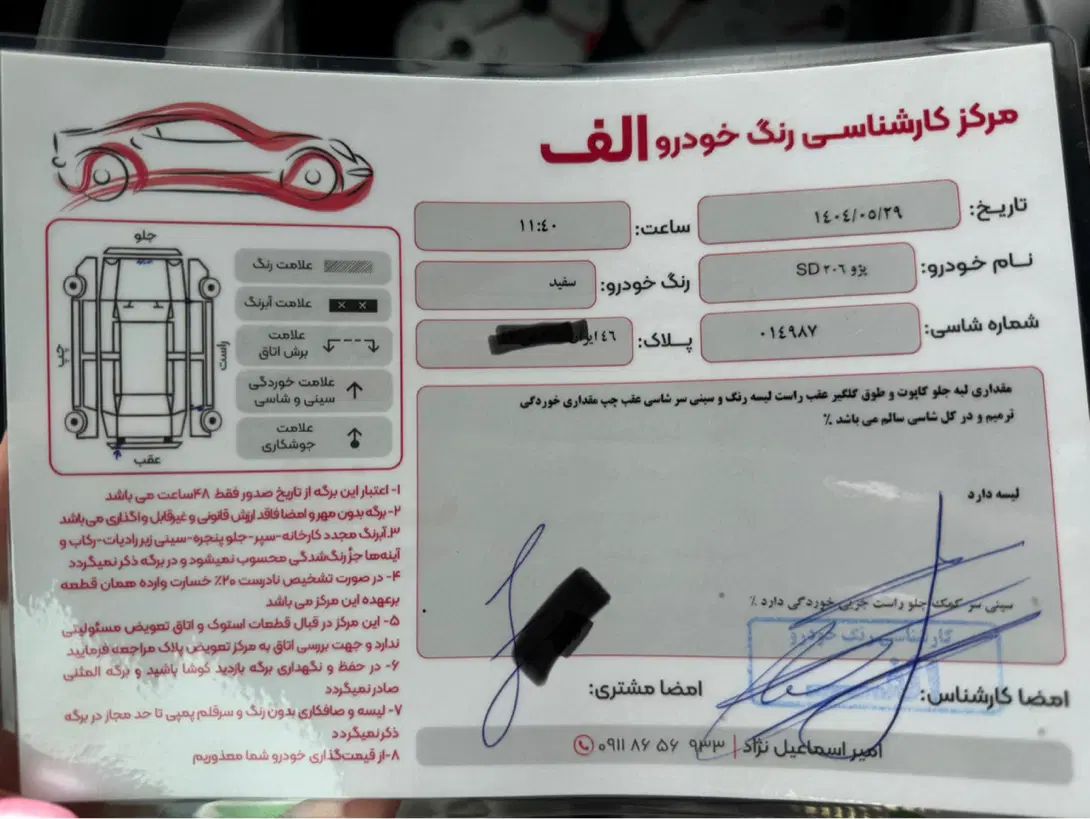 مرکز کارشناسی رنگ خودرو الف
تاریخ: ۱۴۰۴/۰۵/۲۹
ساعت: ۱۱:۴۰
نام خودرو: پژو ۲۰۶ SD
رنگ خودرو: سفید
شماره شاسی: ۰۱۴۹۸۷
پلاک: ۴۶ ایران
مقداری لبه جلو کاپوت و طوق گلگیر عقب راست لیسه رنگ و سینی سر شاسی عقب چپ مقداری خوردگی
ترمیم و در کل شاسی سالم می باشد ٪
لیسه دارد
سینی سر کمک جلو راست جزیی خوردگی دارد ٪
کارشناسی رنگ خودرو
امضا کارشناس:
امضا مشتری:
امیر اسماعیل نژاد | ۰۹۱۱ ۸۶ ۵۶ ۹۳۳
جلو
راست
چپ
عقب
علامت رنگ
علامت آبرنگ
علامت
برش اتاق
علامت خوردگی
سینی و شاسی
علامت
جوشکاری
۱- اعتبار این برگه از تاریخ صدور فقط ۴۸ساعت می باشد
۲- برگه بدون مهر و امضا فاقد ارزش قانونی و غیرقابل واگذاری می باشد
۳.آبرنگ مجدد کارخانه-سپر-جلو پنجره-سینی زیر رادیات-رکاب و
آینه‌ها جزُ رنگ‌شدگی محسوب نمیشود و در برگه ذکر نمیگردد
۴- در صورت تشخیص نادرست ۲۰٪ خسارت وارده همان قطعه
برعهده این مرکز می باشد
۵- این مرکز در قبال قطعات استوک و اتاق تعویض مسئولیتی
ندارد و جهت بررسی اتاق به مرکز تعویض پلاک مراجعه فرمایید
۶- در حفظ و نگهداری برگه بازدید کوشا باشید و برگه المثنی
صادر نمیگردد
۷- لیسه و صافکاری بدون رنگ و سرقلم پمپی تا حد مجاز در برگه
ذکر نمیگردد
۸-از قیمت‌گذاری خودرو شما معذوریم